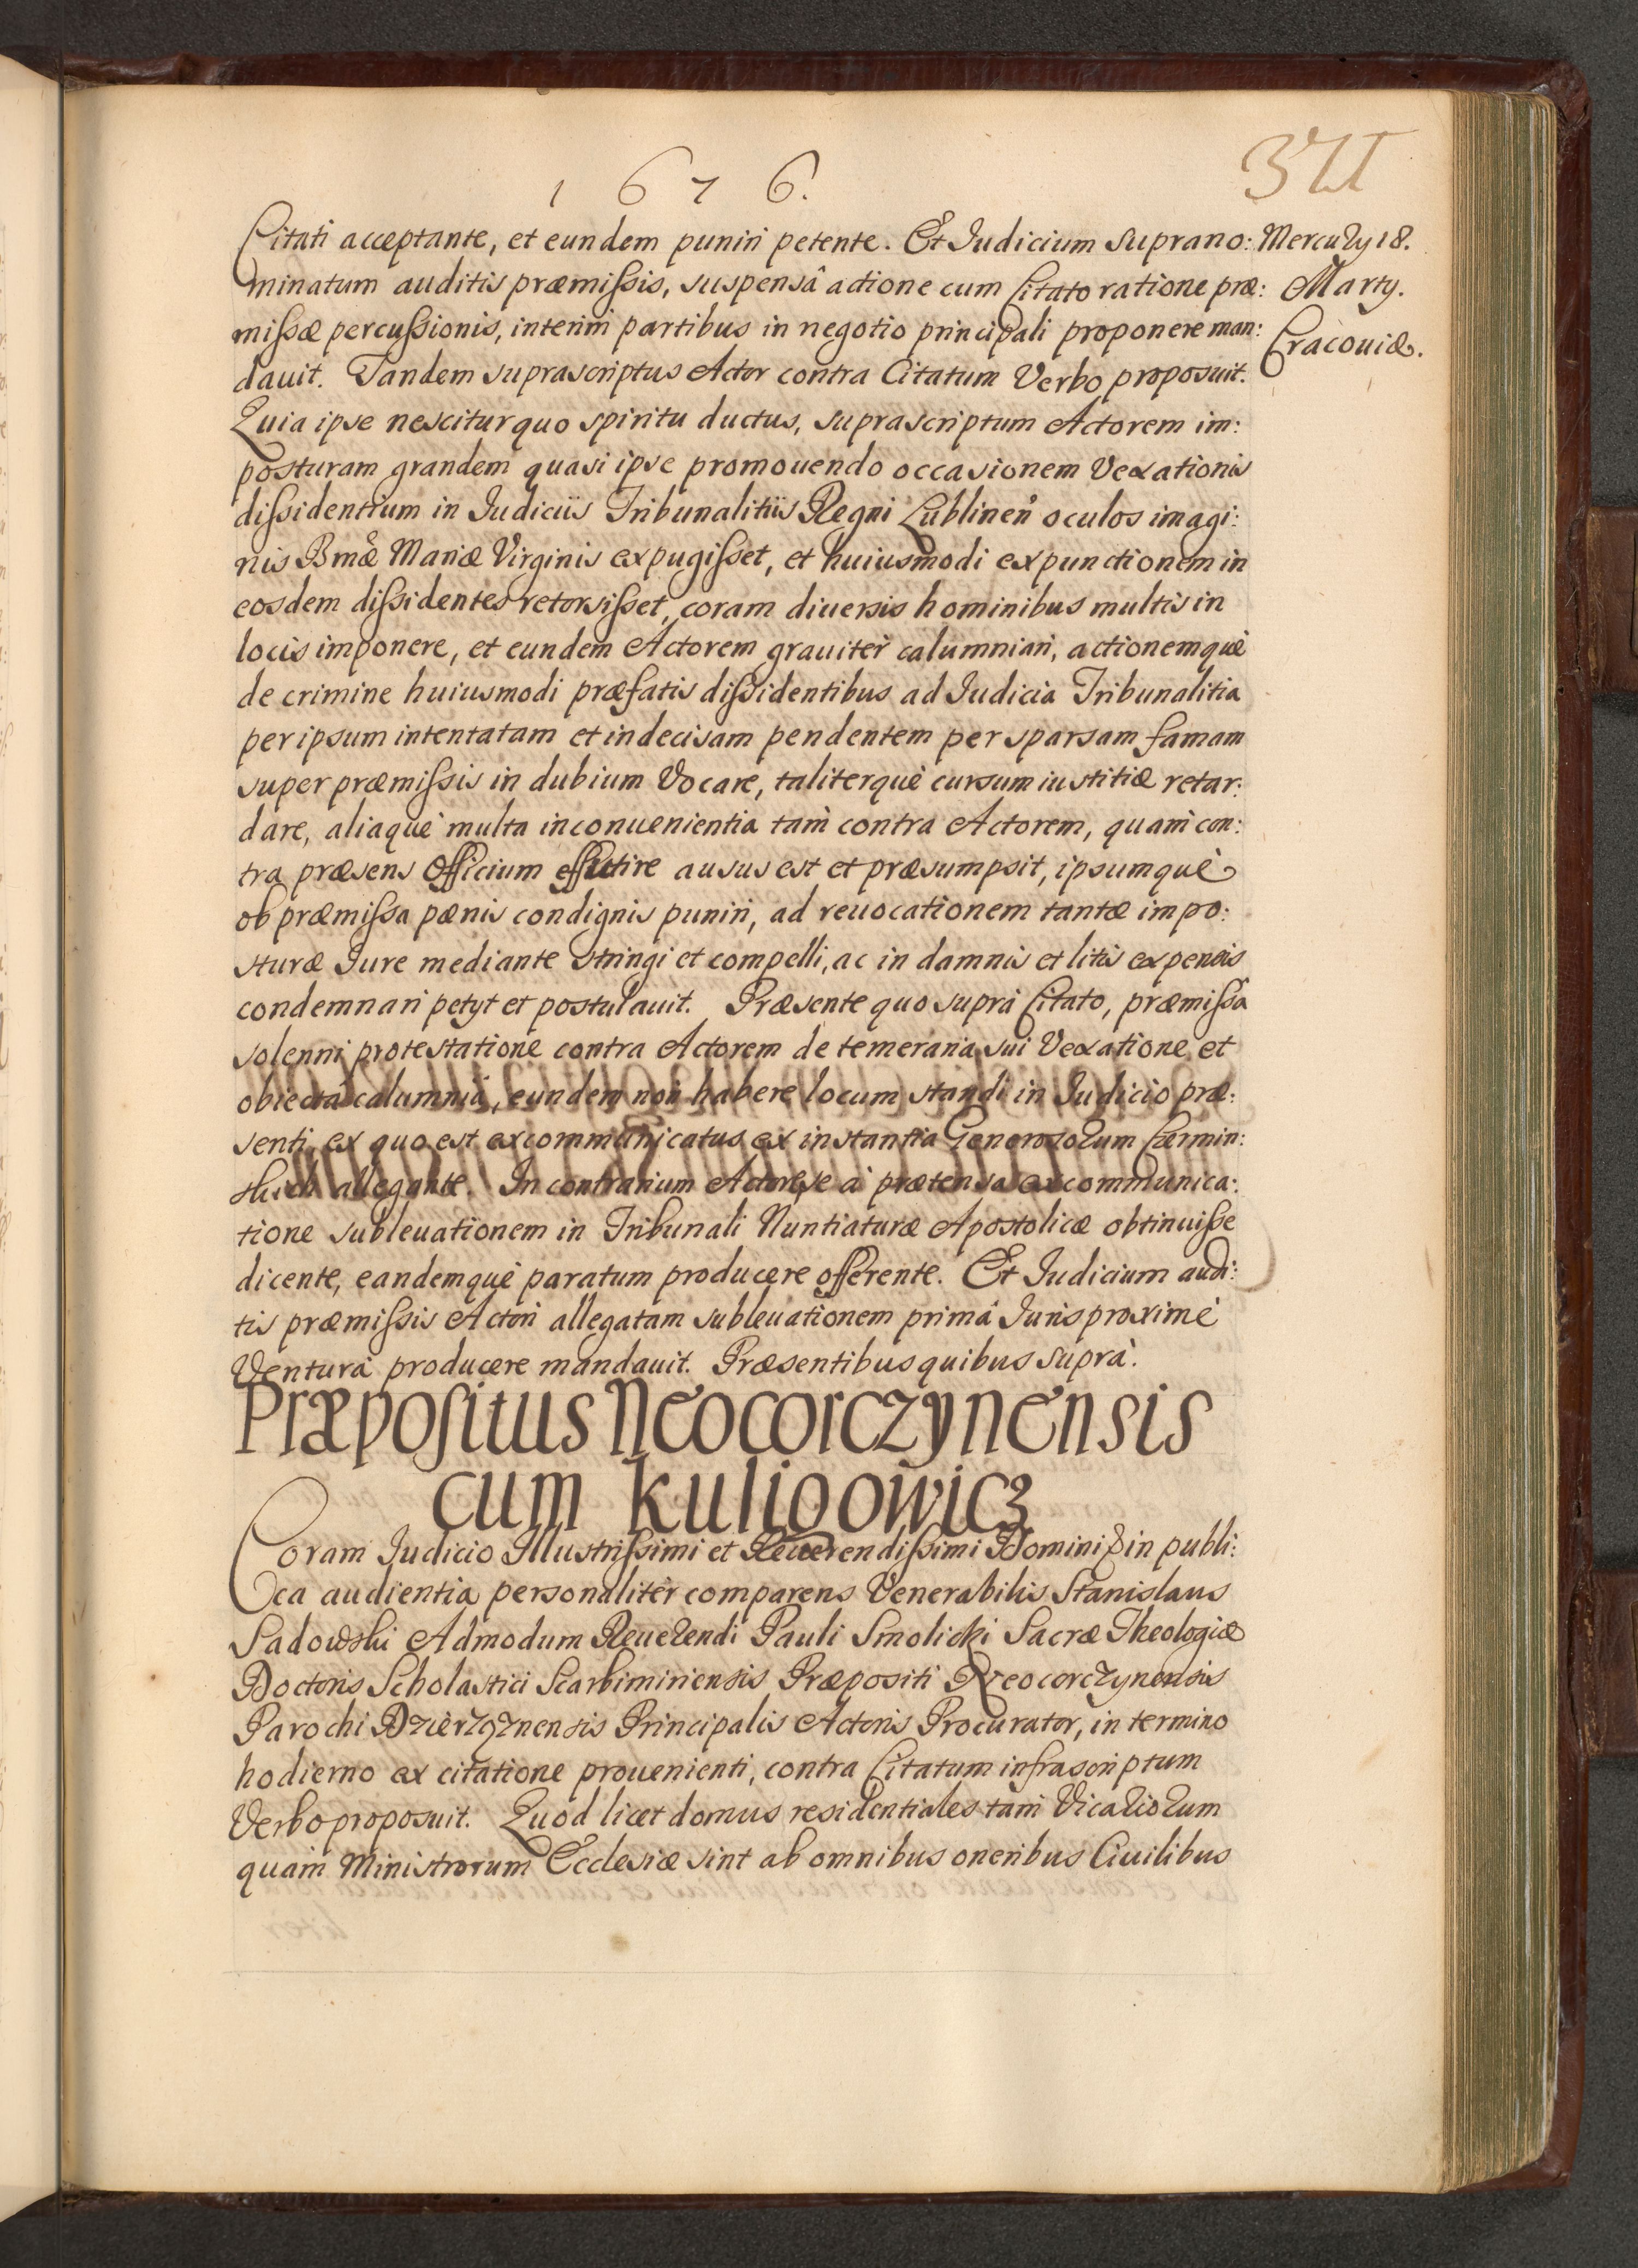 1 6 7 6.
371
Citati acceptante, et eundem puniri petente. Et Iudicium Suprano:
Mercury 18.
minatum auditis præmißis, suspensâ actione cum Citato ratione præ:
Marty.
mißæ percußionis, interim partibus in negotio principali proponere man:
Cracouiæ.
dauit. Tandem suprascriptus Actor contra Citatum Verbo proposuit.
Quia ipse nescitur quo spiritu ductus, suprascriptum Actorem im:
posturam grandem quasi ipse promouendo occasionem Vexationis
dißidentium in Iudiciis Tribunalitiis Regni Lublinen̊ oculos imagi:
nis Bmæ̊ Mariæ Virginis expugißet, et huiusmodi expunctionem in
eosdem dißidentes retorsißet, coram diuersis hominibus multis in
locis imponere, et eundem Actorem grauitèr calumniari, actionemquè
de crimine huiusmodi præfatis dißidentibus ad Iudicia Tribunalitia
per ipsum intentatam et indecisam pendentem per sparsam famam
super præmißis in dubium Vocare, taliterquè cursum iustitiæ retar:
dare, aliaquè multa inconuenientia tam̀ contra Actorem, quam̀ con:
tra præsens Officium effutire ausus est et præsumpsit, ipsumquè
ob præmißa pænis condignis puniri, ad reuocationem tantæ impo:
sturæ Iure mediante stringi et compelli, ac in damnis et litis expensis
condemnari petyt et postulauit. Præsente quo suprà Citato, præmißâ
solenni protestatione contra Actorem de temeraria sui Vexatione et
obiecta calumniâ, eundem non habere locum standi in Iudicio præ:
senti, ex quo est excommunicatus ex instantia Generosorum Czermin:
skich allegante. In contrarium Actore se à prætensa excommunica:
tione subleuationem in Tribunali Nuntiaturæ Apostolicæ obtinuiße
dicente, eandemquè paratum producere offerente. Et Iudicium audi:
tis præmißis Actori allegatam subleuationem primâ Iuris proximè
Venturâ producere mandauit. Præsentibus quibus suprà.
Præpositus Neocorczynensis
cum Kuligowicz
Coram Iudicio Illustrißimi et Reuerendißimi Domini in publi:
ca audientia personalitèr comparens Venerabilis Stanislaus
Sadowski Admodum Reuerendi Pauli Smolicki Sacræ Theologiæ
Doctoris Scholastici Scarbimiriensis Præpositi Neocorczynensis
Parochi Dzierżąznensis Principalis Actoris Procurator, in termino
hodierno ex citatione prouenienti, contra Citatum infrascriptum
Verbo proposuit. Quod licet domus residentiales tam̀ Vicariorum
quam̀ Ministrorum Ecclesiæ sint ab omnibus oneribus Ciuilibus